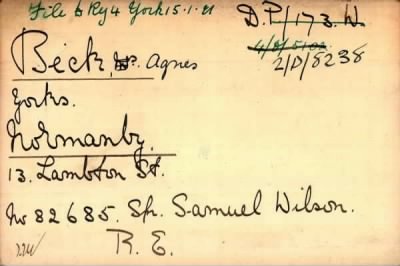 File to Rg 4 York 15.1.21
D.P/173.W.
4/D/5102
2/D/8238
Beck, Agnes
Yorks.
Normanby.
13. Lambton St.
No 82685. Spr. Samuel Wilson.
R.E.